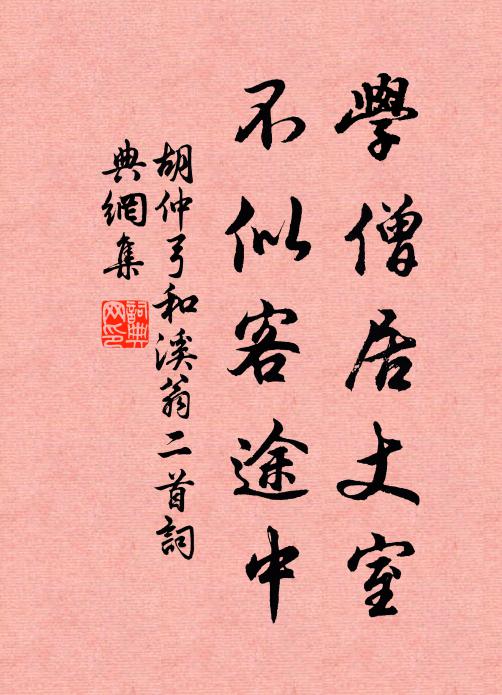 學僧居丈室
不似客途中
胡仲弓和溪翁二首詞
典網集
詞典網印